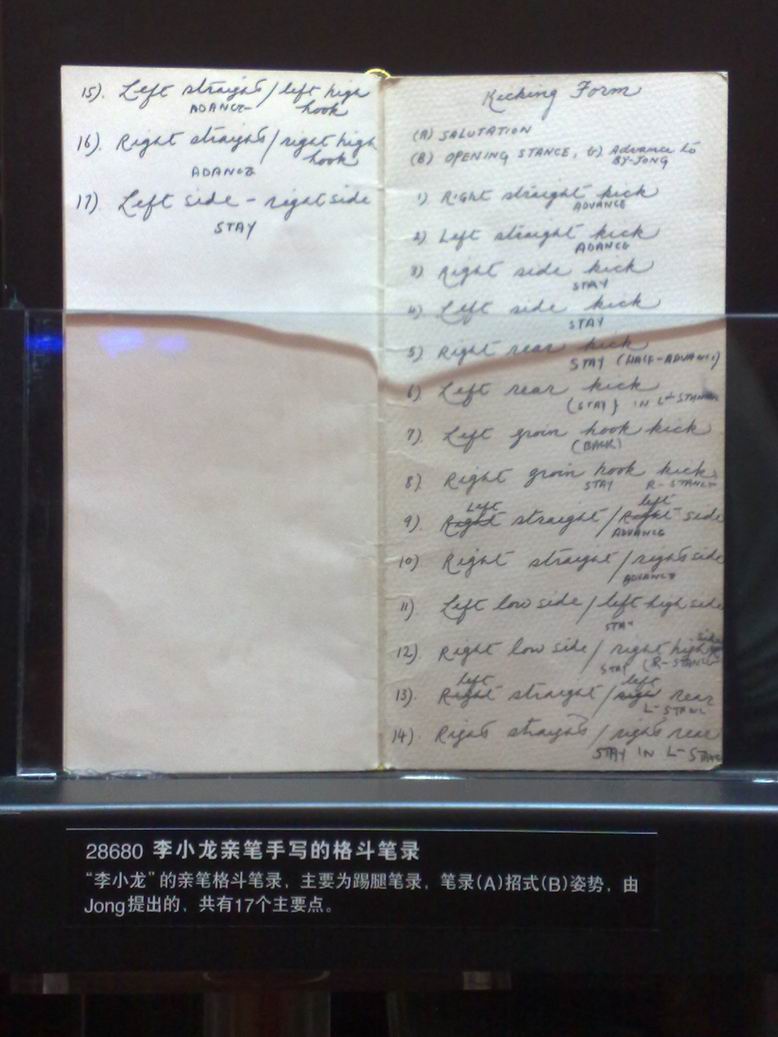 15). Left straight / left high
ADANCE
hook
16). Right straight / right high
hook
ADANCE
17). Left side - right side
STAY
Kicking Form
(A) SALUTATION
(B) OPENING STANCE, & Advance to
BY-JONG
1) RIGHT straight kick
ADVANCE
2) Left straight kick
ADANCE
3) Right side kick
STAY
4) Left side kick
STAY
5) Right rear kick
STAY (HALF-ADVANCE)
6) Left rear kick
(STAY) IN L-STANCE
7) Left groin hook kick
(BACK)
8) Right groin hook kick
STAY R-STANCE
Left left
9) Right straight / Right side
ADVANCE
10) Right straight / right side
ADVANCE
11) Left low side / left high side
STAY
12) Right low side / right high side
STAY (R-STANCE
left left
13) Right straight / right rear
L-STANCE
14) Right straight / right rear
STAY IN L-STANCE
28680 李小龙亲笔手写的格斗笔录
“李小龙”的亲笔格斗笔录，主要为踢腿笔录，笔录(A)招式(B)姿势，由
Jong提出的，共有17个主要点。